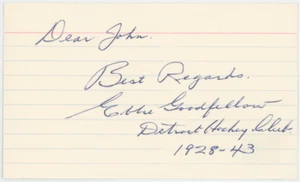 Dear John.
Best Regards.
Ebbie Goodfellow
Detroit Hockey Club.
1928-43